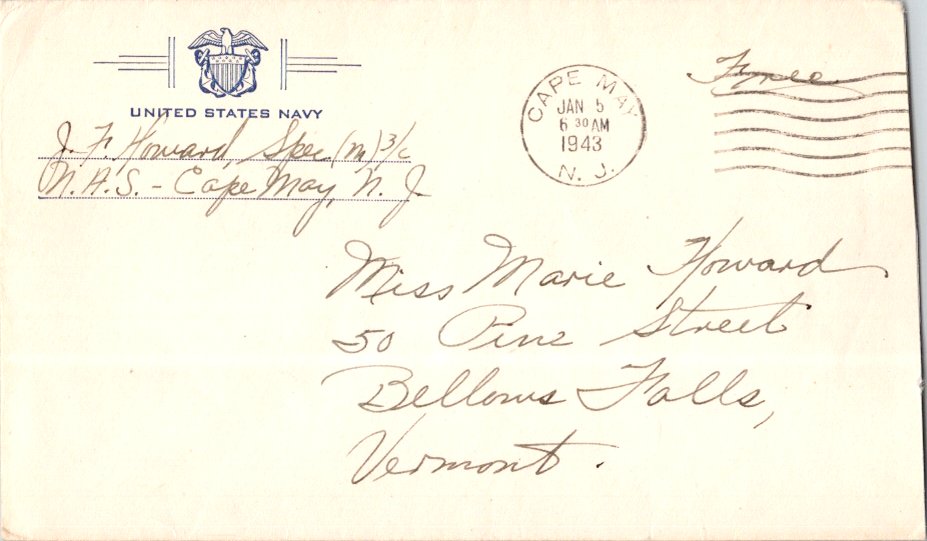 UNITED STATES NAVY
J. F. Howard, Spec (m) 3/c
N.A.S. - Cape May, N. J.
CAPE MAY
JAN 5
6 30 AM
1943
N. J.
Free
Miss Marie Howard
50 Pine Street
Bellows Falls,
Vermont.